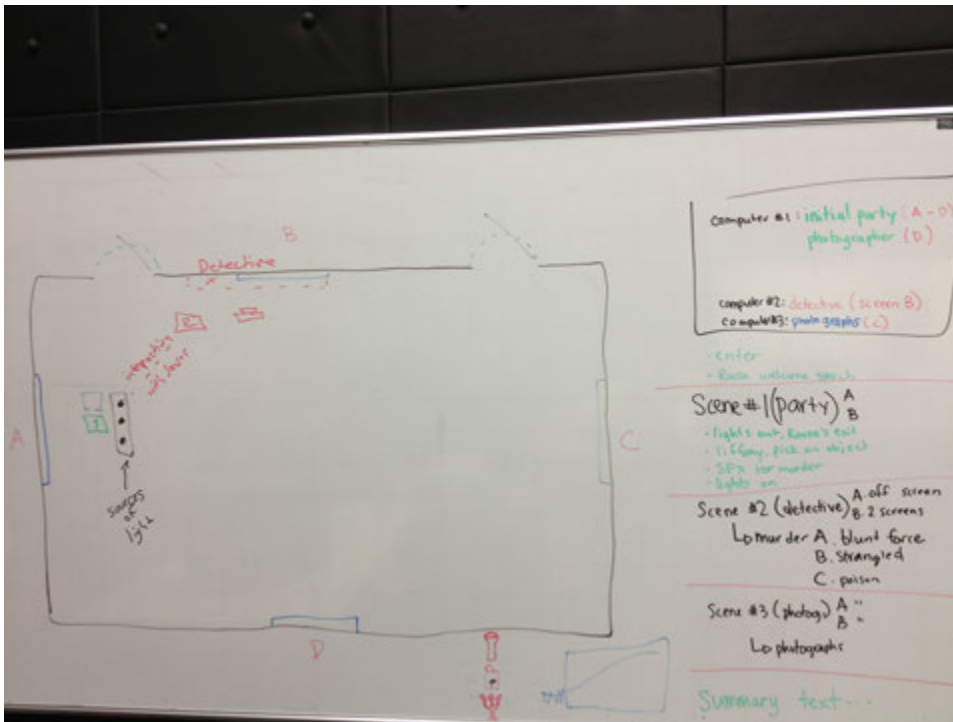 B
Detective
A
sources
of
light
C
D
computer #1: initial party (A-D)
photographer (D)
computer #2: detective (screen B)
computer #3: photographs (C)
- enter
Scene #1 (party) A
B
- lights out,
- tiffany, pick an object
- SFX for murder
- lights on
Scene #2 (detective) A. off screen
B. 2 screens
murder A. blunt force
B. strangled
C. poison
Scene #3 (photog) A "
B "
photographs
Summary text...